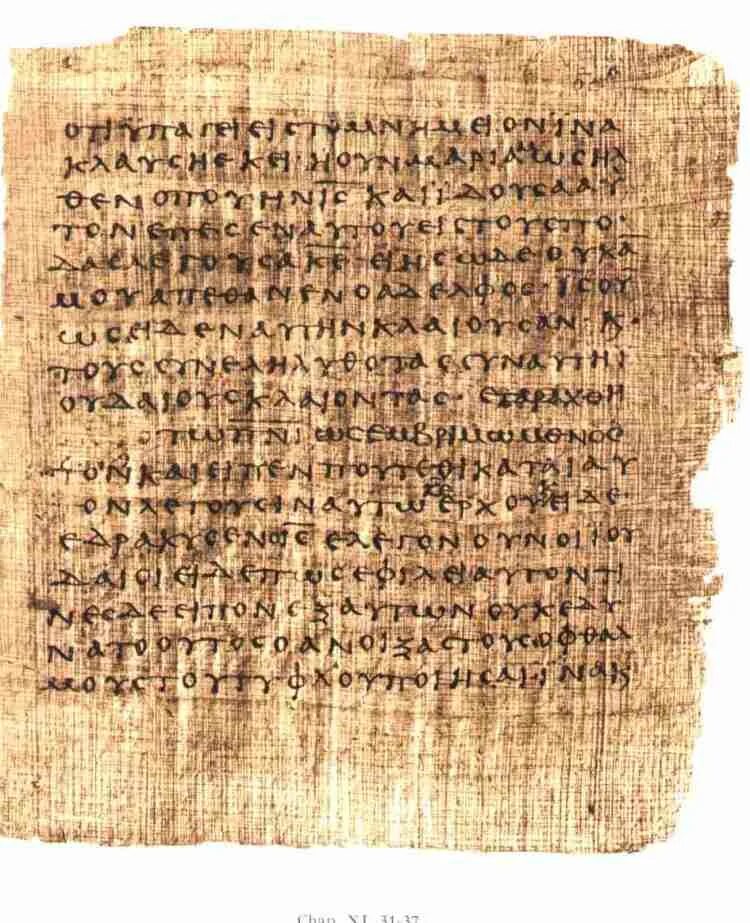 ΟΤΙΥΠΑΓΕΙΕΙϹΤΟΜΝΗΜΕΙΟΝΪΝΑ
ΚΛΑΥϹΗΕΚΕΙ·ΗΟΥΝΜΑΡΙΑΜΩϹΗΛ
ΘΕΝΟΠΟΥΗΝΙ̅Ϲ̅ΚΑΙΪΔΟΥϹΑΑΥ
ΤΟΝΕΠΕϹΕΝΑΥΤΟΥΕΙϹΤΟΥϹΠΟ·
ΔΑϹΛΕΓΟΥϹΑΚ̅Ε̅·ΕΙΗϹΩΔΕΟΥΚΑ̅
ΜΟΥΑΠΕΘΑΝΕΝΟΑΔΕΛΦΟϹ·Ι̅Ϲ̅ΟΥ̅
ΩϹΕΙΔΕΝΑΥΤΗΝΚΛΑΙΟΥϹΑΝ·Κ·
ΤΟΥϹϹΥΝΕΛΗΛΥΘΟΤΑϹϹΥΝΑΥΤΗΪ
ΟΥΔΑΙΟΥϹΚΛΑΙΟΝΤΑϹ·ΕΤΑΡΑΧΘΗ
ΤΩΠ̅Ν̅Ι̅ΩϹΕΜΒΡΙΜΩΜΕΝΟϹ
ΤΟΝΚΑΙΕΙΠΕΝΠΟΥΤΕΘΙΚΑΤΑΙΑΥ
ΟΝΛΕΓΟΥϹΙΝΑΥΤΩΕΡΧΟΥΚΕΙΔΕ·
ΕΔΡΑΚΥϹΕΝΟΙ̅Ϲ̅ΕΛΕΓΟΝΟΥΝΟΙΙΟΥ
ΔΑΙΟΙΕΙΔΕΠΩϹΕΦΙΛΕΙΑΥΤΟΝΤΙ
ΝΕϹΔΕΕΙΠΟΝΕΞΑΥΤΩΝΟΥΚΕΔΥ
ΝΑΤΟΟΥΤΟϹΟΑΝΟΙΞΑϹΤΟΥϹΟΦΘΑΛ
ΜΟΥϹΤΟΥΤΥΦΛΟΥΠΟΙΗϹΑΙ·ΪΝΑΚ
Chap. XI, 31-37